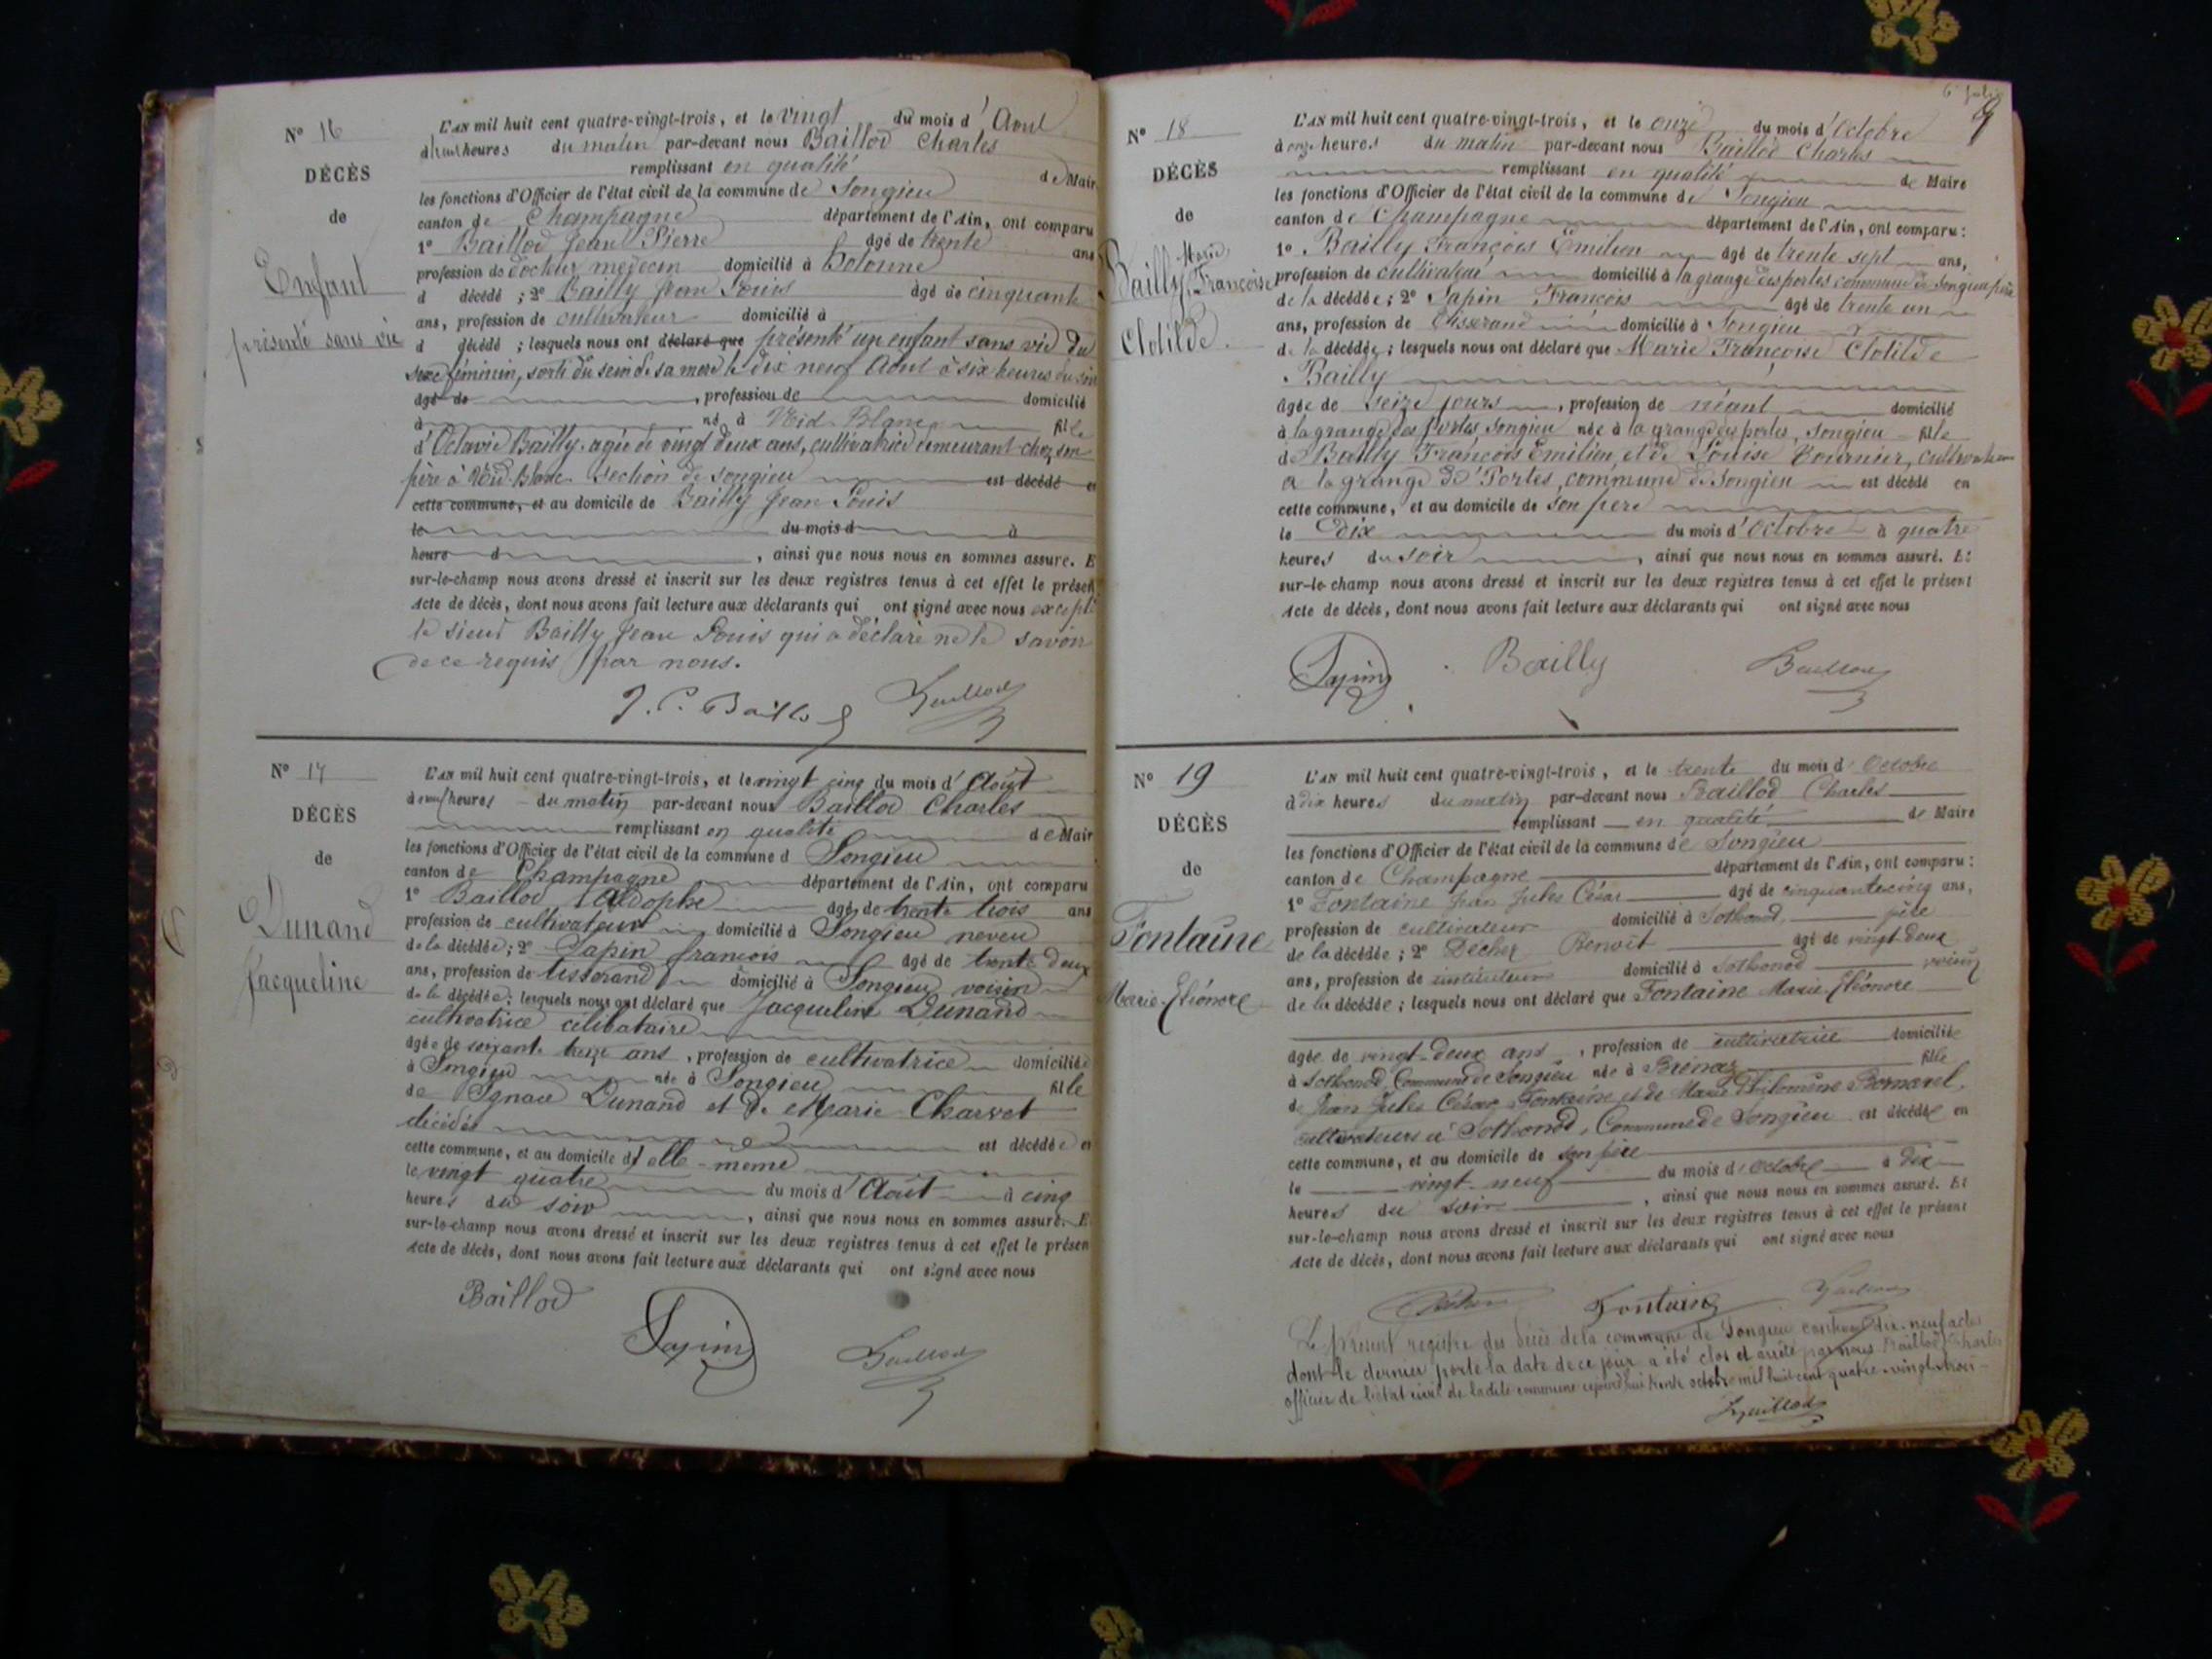 N° 16
DÉCÈS
de
Enfant
présenté sans vie
L'AN mil huit cent quatre-vingt-trois, et le vingt du mois d'Aout
heures du matin par-devant nous Baillod Charles
remplissant en qualité de Mair
les fonctions d'Officier de l'état civil de la commune de Songieu
canton de Champagne département de l'Ain, ont comparu
1° Baillod Jean Pierre âgé de trente ans
profession de docteur medecin domicilié à
d décédé ; 2° Bailly Jean Louis âgé de cinquante
ans, profession de cultivateur domicilié à
d décédé ; lesquels nous ont déclaré que présenté un enfant sans vie du
sexe féminin, sorti du sein de sa mere le dix neuf Aout à six heures du soir
âgé de , profession de domicilié
à né à Nid-Blanc fille
d'Octavie Bailly, agée de vingt deux ans, cultivatrice demeurant chez son
père à Nid-Blanc section de songieu est décédé e
cette commune, et au domicile de Bailly Jean Louis
le du mois d à
heure d , ainsi que nous nous en sommes assuré. E
sur-le-champ nous avons dressé et inscrit sur les deux registres tenus à cet effet le présen
Acte de décès, dont nous avons fait lecture aux déclarants qui ont signé avec nous excepté
le sieur Bailly Jean Louis qui a déclaré ne le savoir
de ce requis par nous.
J. P. Baillod Baillod
N° 17
DÉCÈS
de
Dunand
Jacqueline
L'AN mil huit cent quatre-vingt-trois, et le vingt cinq du mois d'Août
à neuf heures du matin par-devant nous Baillod Charles
remplissant en qualité de Mair
les fonctions d'Officier de l'état civil de la commune d Songieu
canton de Champagne département de l'Ain, ont comparu
1° Baillod Aldophe âgé de trente trois ans
profession de cultivateur domicilié à Songieu neveu
de la décédée ; 2° Lapin françois âgé de trente deux
ans, profession de tisserand domicilié à Songieu voisin
de la décédée ; lesquels nous ont déclaré que Jacqueline Dunand
cultivatrice célibataire
âgée de soixante treize ans , profession de cultivatrice domiciliée
à Songieu née à Songieu fille
de Ignace Dunand et de Marie Charvet
décédés est décédée e
cette commune, et au domicile d'elle-meme
le vingt quatre du mois d'Août à cinq
heures du soir , ainsi que nous nous en sommes assuré. E
sur-le-champ nous avons dressé et inscrit sur les deux registres tenus à cet effet le présen
Acte de décès, dont nous avons fait lecture aux déclarants qui ont signé avec nous
Baillod Lapin Baillod
9
N° 18
DÉCÈS
de
Marie
Bailly Françoise
Clotilde.
L'AN mil huit cent quatre-vingt-trois, et le onze du mois d'Octobre
à onze heures du matin par-devant nous Baillod Charles
remplissant en qualité de Maire
les fonctions d'Officier de l'état civil de la commune de Songieu
canton de Champagne département de l'Ain, ont comparu :
1° Bailly François Emilien âgé de trente sept ans,
profession de cultivateur domicilié à la grange des portes commune de Songieu père
de la décédée ; 2° Lapin François âgé de trente un
ans, profession de tisserand domicilié à Songieu
de la décédée ; lesquels nous ont déclaré que Marie Françoise Clotilde
Bailly
âgée de seize jours , profession de néant domicilié
à la grange des portes Songieu née à la grange des portes, Songieu fille
de Bailly François Emilien, et de Louise Fournier, cultivateurs
à la grange de Portes, commune de Songieu est décédé en
cette commune, et au domicile de son pere
le Dix du mois d'Octobre à quatre
heures du soir , ainsi que nous nous en sommes assuré. Et
sur-le-champ nous avons dressé et inscrit sur les deux registres tenus à cet effet le présent
Acte de décès, dont nous avons fait lecture aux déclarants qui ont signé avec nous
Lapin Bailly Baillod
N° 19
DÉCÈS
de
Fontaine
Marie-Eléonore
L'AN mil huit cent quatre-vingt-trois, et le trente du mois d'Octobre
à dix heures du matin par-devant nous Baillod Charles
remplissant en qualité de Maire
les fonctions d'Officier de l'état civil de la commune de Songieu
canton de Champagne département de l'Ain, ont comparu :
1° Fontaine Jean Jules César âgé de cinquante cinq ans,
profession de cultivateur domicilié à Sothonod, père
de la décédée ; 2° Benoît âgé de vingt-deux
ans, profession de instituteur domicilié à Sothonod voisin
de la décédée ; lesquels nous ont déclaré que Fontaine Marie Eléonore
âgée de vingt-deux ans , profession de cultivatrice domiciliée
à Sothonod, Commune de Songieu née à Brénaz fille
de Jean Jules César Fontaine et de Marie Philomène
cultivateurs à Sothonod, Commune de Songieu est décédée en
cette commune, et au domicile de son père
le vingt-neuf du mois d'Octobre à dix
heures du soir , ainsi que nous nous en sommes assuré. Et
sur-le-champ nous avons dressé et inscrit sur les deux registres tenus à cet effet le présent
Acte de décès, dont nous avons fait lecture aux déclarants qui ont signé avec nous
Fontaine Baillod
Le présent registre des décès de la commune de Songieu contenant dix-neuf actes
dont le dernier porte la date de ce jour a été clos et arrêté par nous Baillod Charles
officier de l'état civil de la dite commune cejourd'hui trente octobre mil huit cent quatre-vingt-trois
Baillod